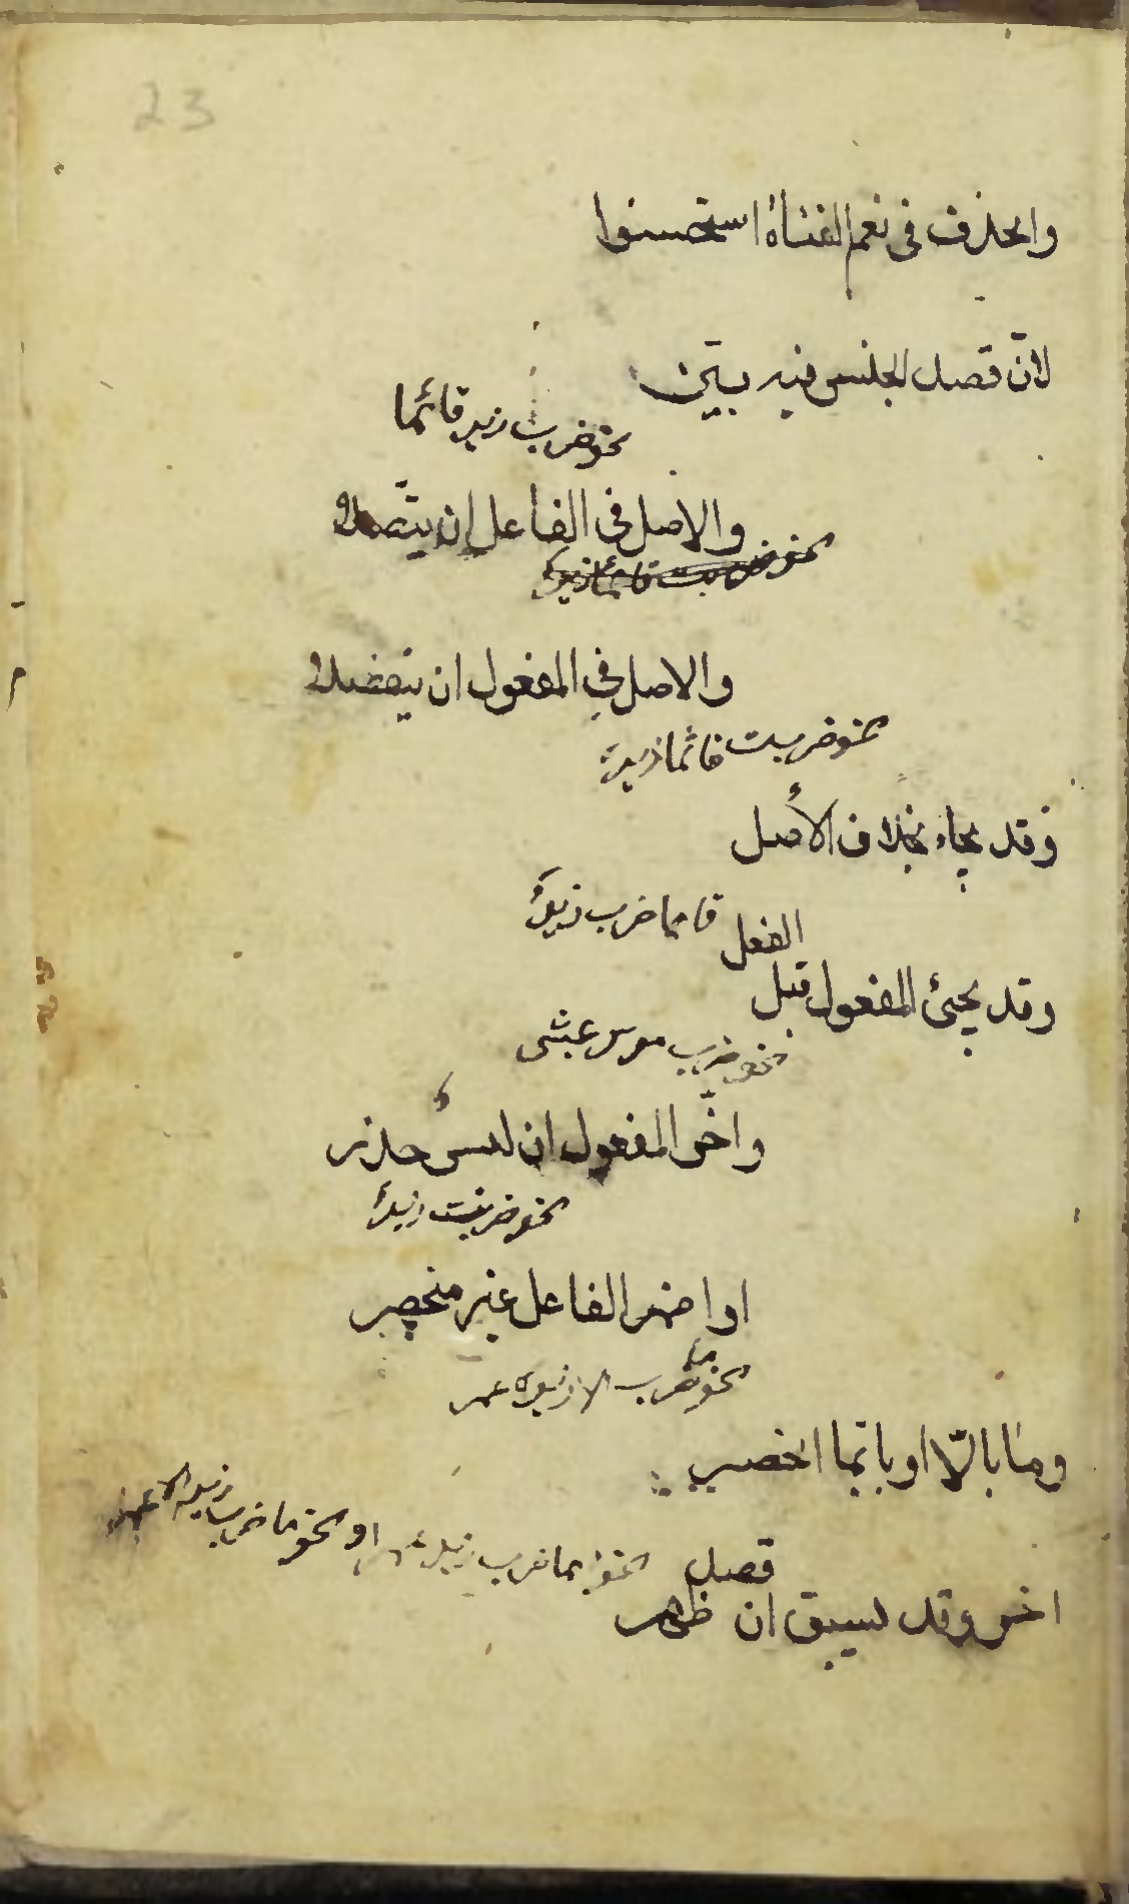 23
والحذف في نعم الفتاة استحسنوا
لانّ قصد الجنس فيه بيّن
نحو ضرب زيد قائما
والاصل في الفاعل ان يتصلا
نحو ضربت قائما زيدا
والاصل في المفعول ان ينفصلا
نحو ضربت قائما زيد
وقد يجاء بخلاف الأصل
قائما ضرب زيدٌ
وقد يجئ المفعول قبل الفعل
نحو ضرب موسى عيسى
واخّر المفعول ان لبسٌ حذر
نحو ضربت زيدا
او اضمر الفاعل غير منحصر
نحو ما ضرب الا زيد عمر
وما بالّا او بانّما انحصر
نحو انما ضرب زيد او نحو ما ضرب زيد الا
اخر وقد يسبق ان قصد ظهر